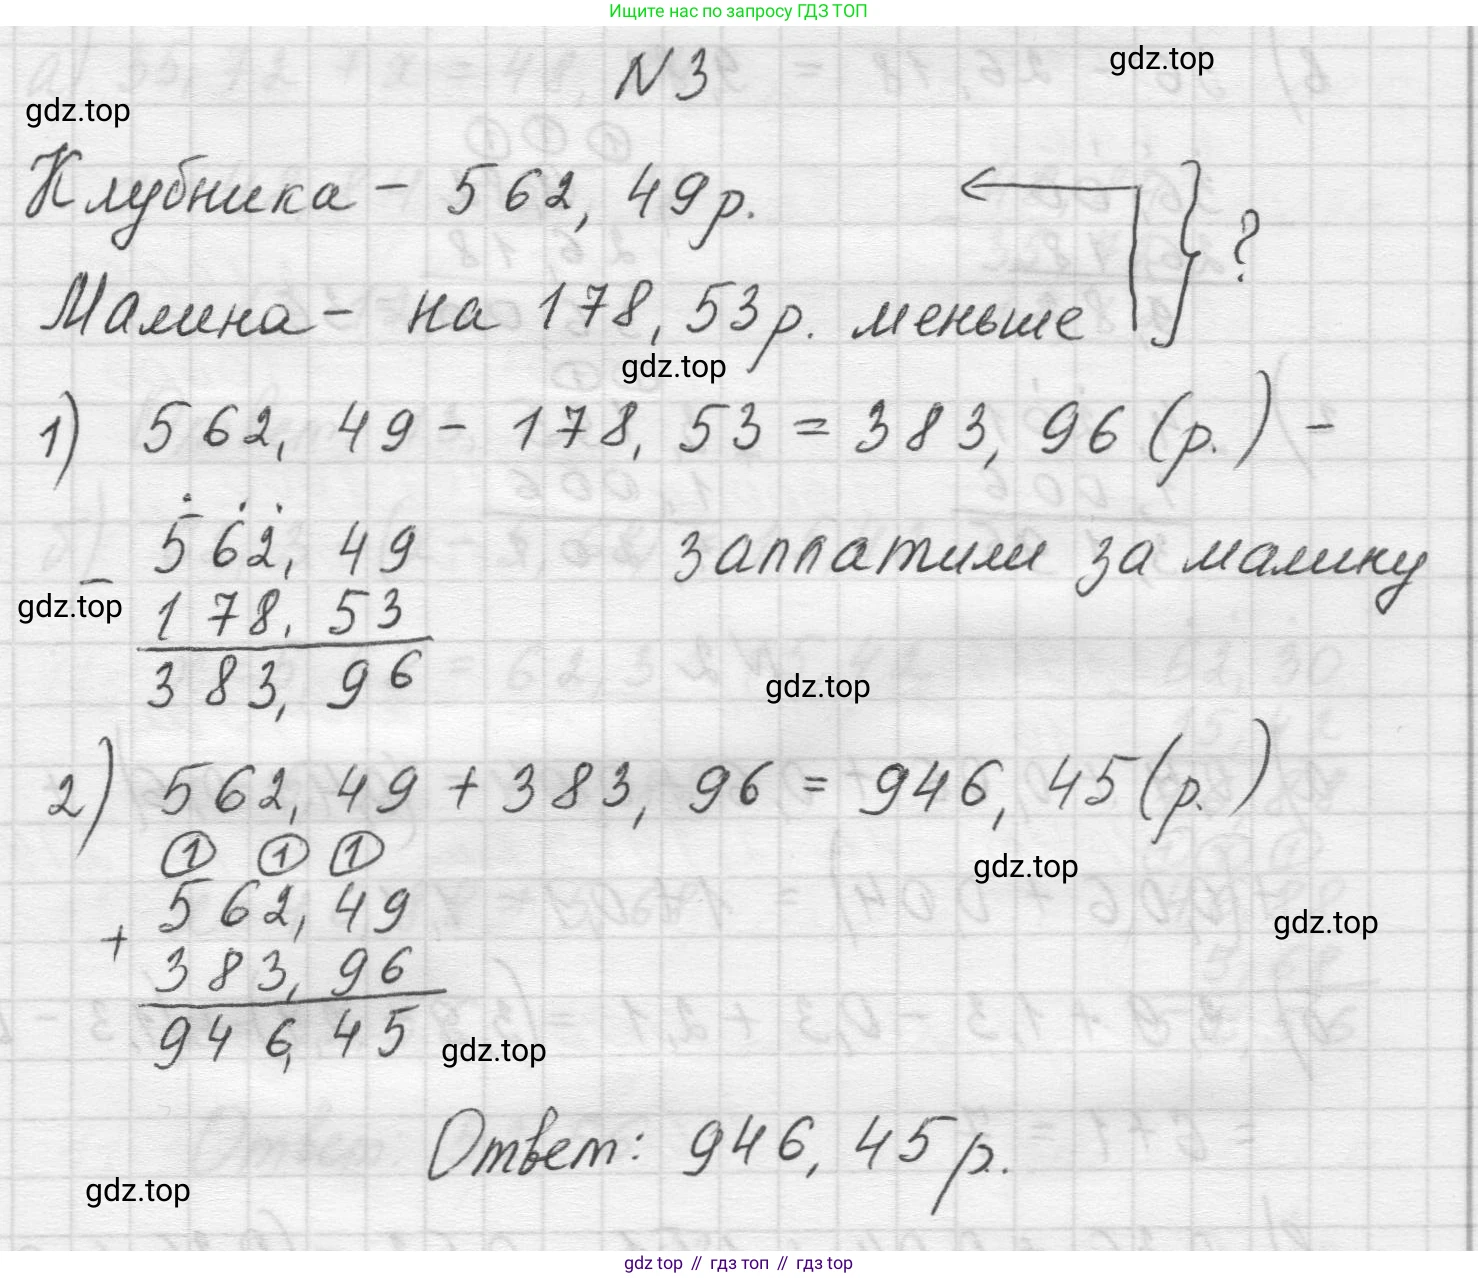 Ищите нас по запросу ГДЗ ТОП
N 3
gdz.top
gdz.top
Клубника - 562,49 р.
Малина - на 178,53 р. меньше
?
gdz.top
1) 562,49 - 178,53 = 383,96 (р.) -
заплатили за малину
562,49
-
gdz.top
178,53
383,96
gdz.top
2) 562,49 + 383,96 = 946,45 (р.)
gdz.top
1 1 1
562,49
gdz.top
+
383,96
946,45
gdz.top
Ответ: 946,45 р.
gdz.top
gdz top // гдз топ // гдз top